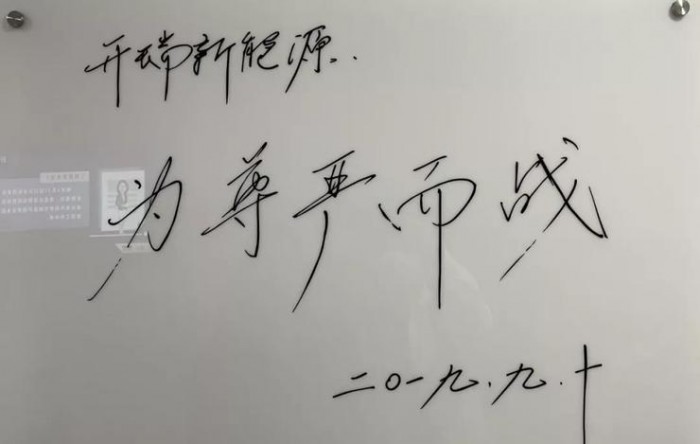 开端新能源..
为尊严而战
二〇一九.九.十